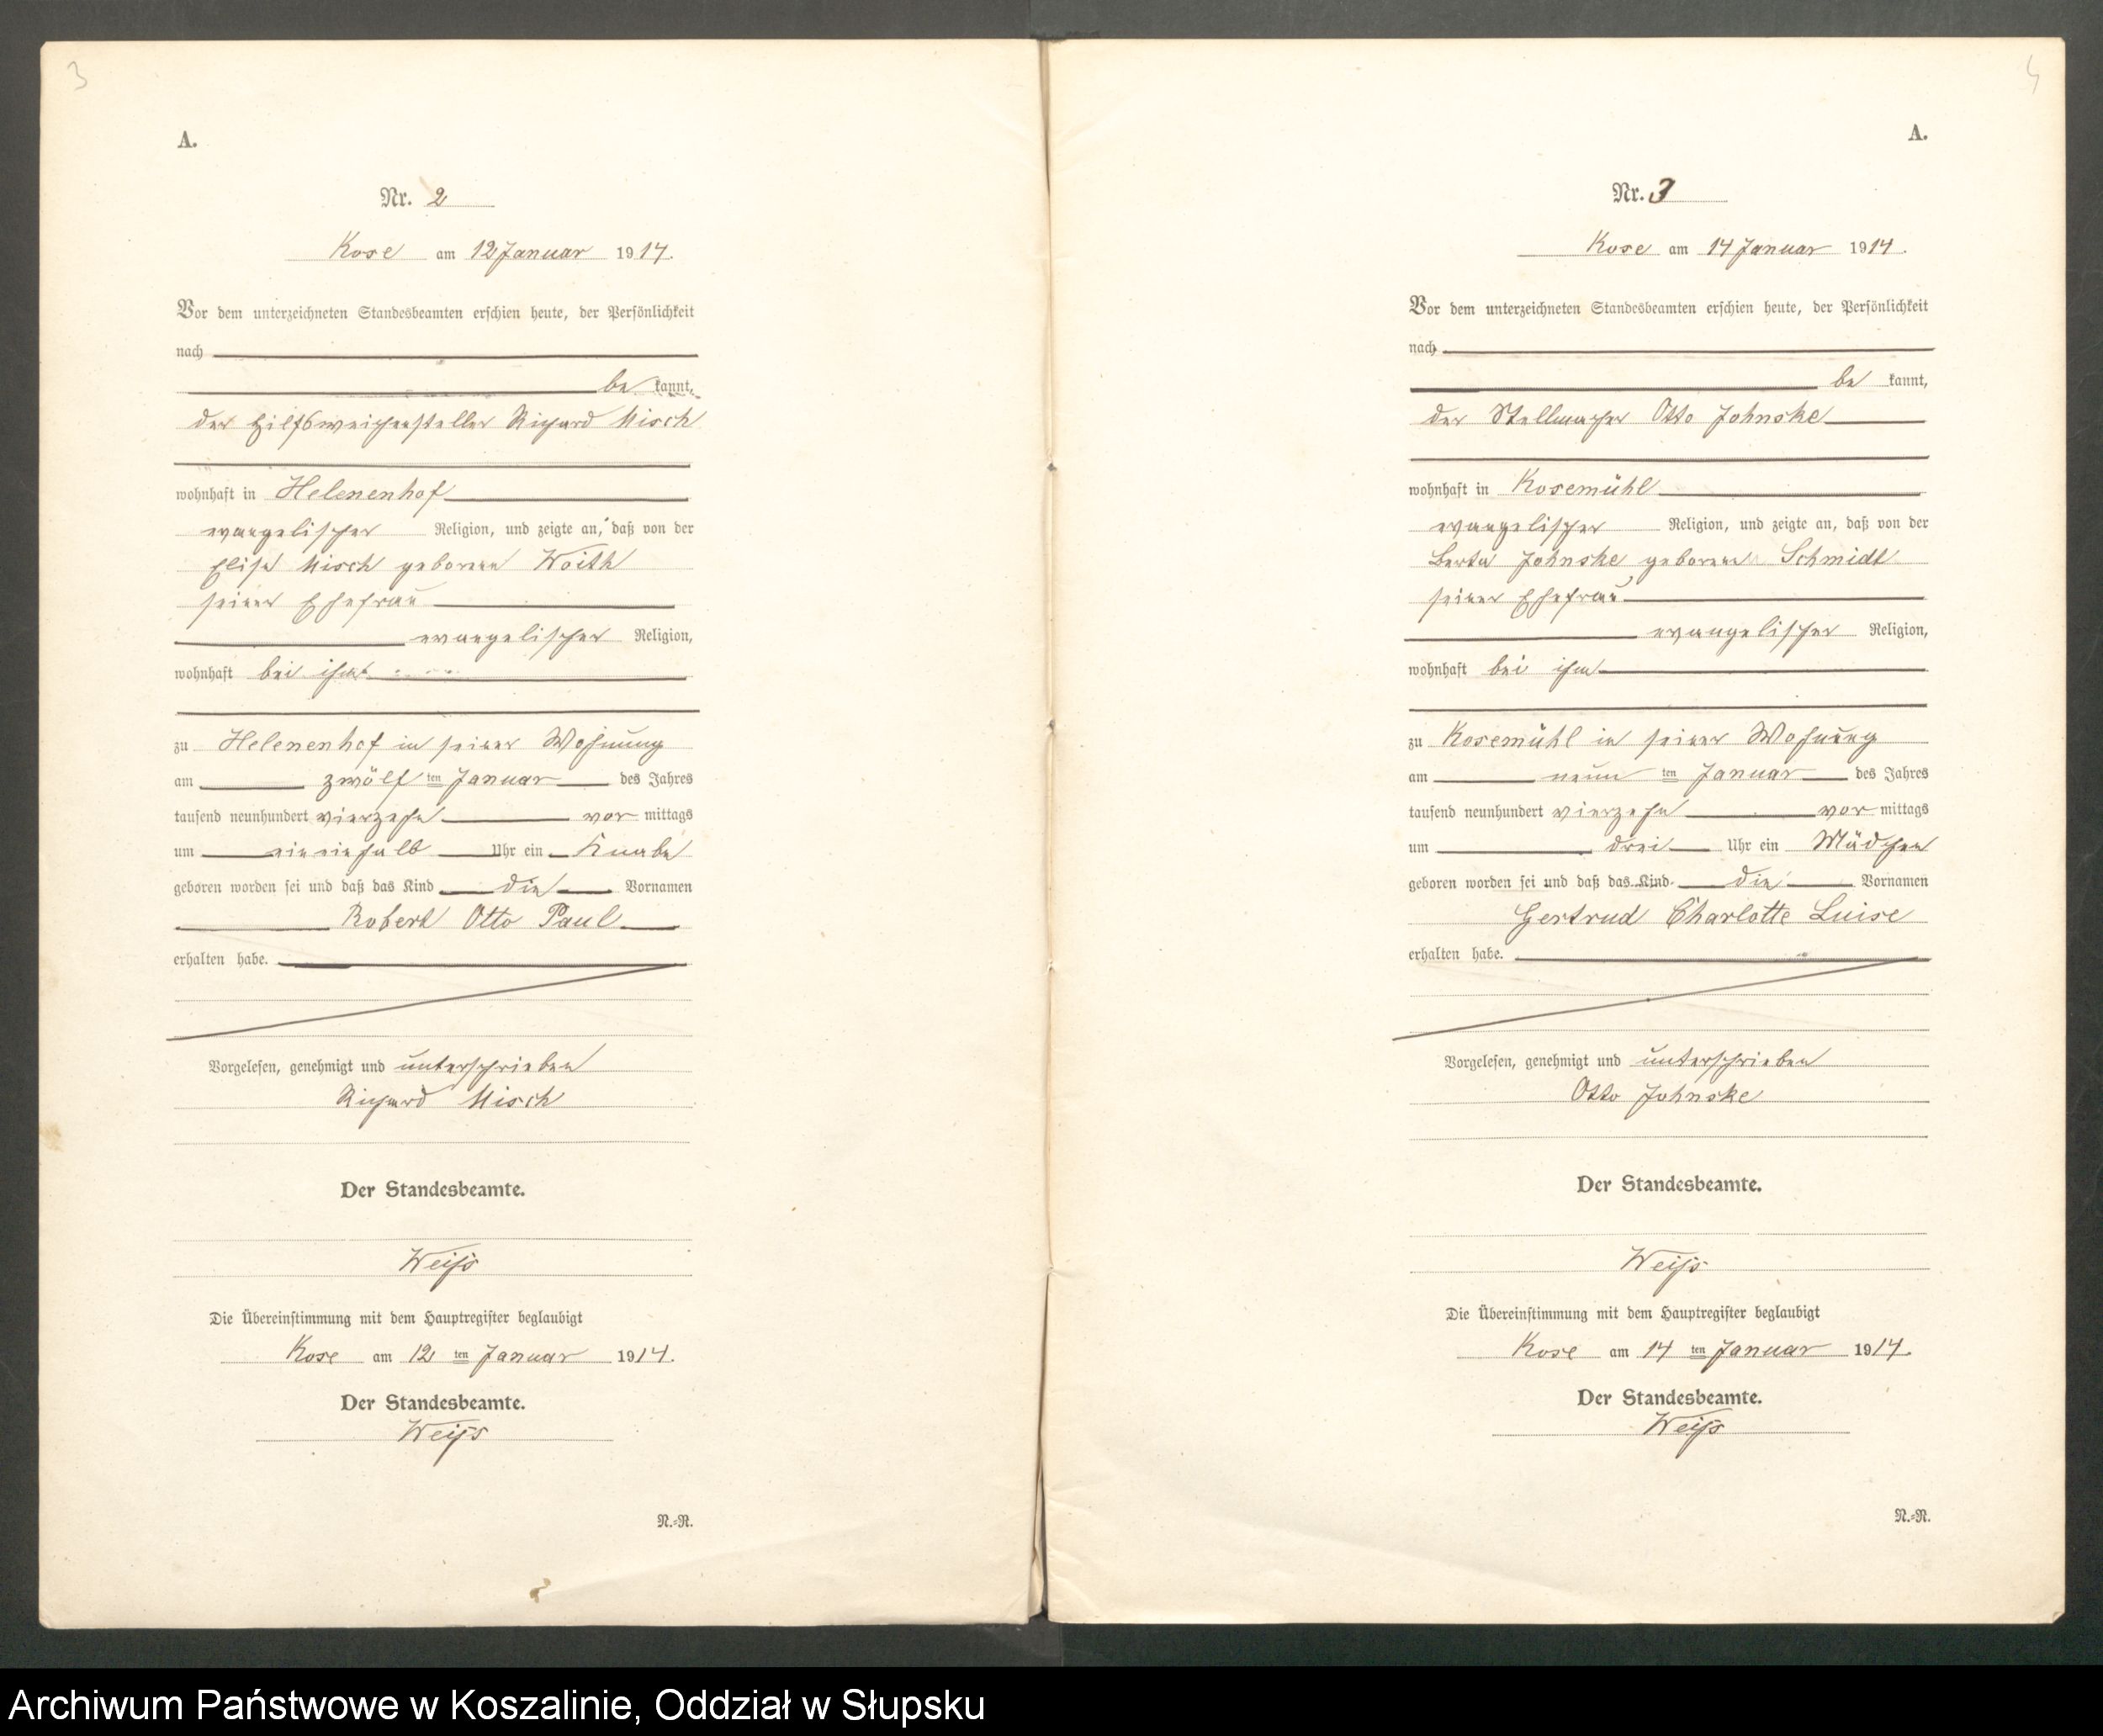 3
A.
Nr. 2
Kose am 12 Januar 1914.
Vor dem unterzeichneten Standesbeamten erschien heute, der Persönlichkeit
nach
be kannt,
der Hilfsweichensteller Richard Misch
wohnhaft in Helenenhof
evangelischer Religion, und zeigte an, daß von der
Elise Misch geborene Woith
seiner Ehefrau
evangelischer Religion,
wohnhaft bei ihm
zu Helenenhof in seiner Wohnung
am zwölf ten Januar des Jahres
tausend neunhundert vierzehn vor mittags
um eineinhalb Uhr ein Knabe
geboren worden sei und daß das Kind die Vornamen
Robert Otto Paul
erhalten habe.
Vorgelesen, genehmigt und unterschrieben
Richard Misch
Der Standesbeamte.
Weiss
Die Übereinstimmung mit dem Hauptregister beglaubigt
Kose am 12 ten Januar 1914.
Der Standesbeamte.
Weiss
N.=R.
4
A.
Nr. 3
Kose am 14 Januar 1914.
Vor dem unterzeichneten Standesbeamten erschien heute, der Persönlichkeit
nach
be kannt,
der Stellmacher Otto Johnske
wohnhaft in Kosemühl
evangelischer Religion, und zeigte an, daß von der
Berta Johnske geborene Schmidt
seiner Ehefrau
evangelischer Religion,
wohnhaft bei ihm
zu Kosemühl in seiner Wohnung
am neun ten Januar des Jahres
tausend neunhundert vierzehn vor mittags
um drei Uhr ein Mädchen
geboren worden sei und daß das Kind die Vornamen
Gertrud Charlotte Luise
erhalten habe.
Vorgelesen, genehmigt und unterschrieben
Otto Johnske
Der Standesbeamte.
Weiss
Die Übereinstimmung mit dem Hauptregister beglaubigt
Kose am 14 ten Januar 1914.
Der Standesbeamte.
Weiss
N.=R.
Archiwum Państwowe w Koszalinie, Oddział w Słupsku